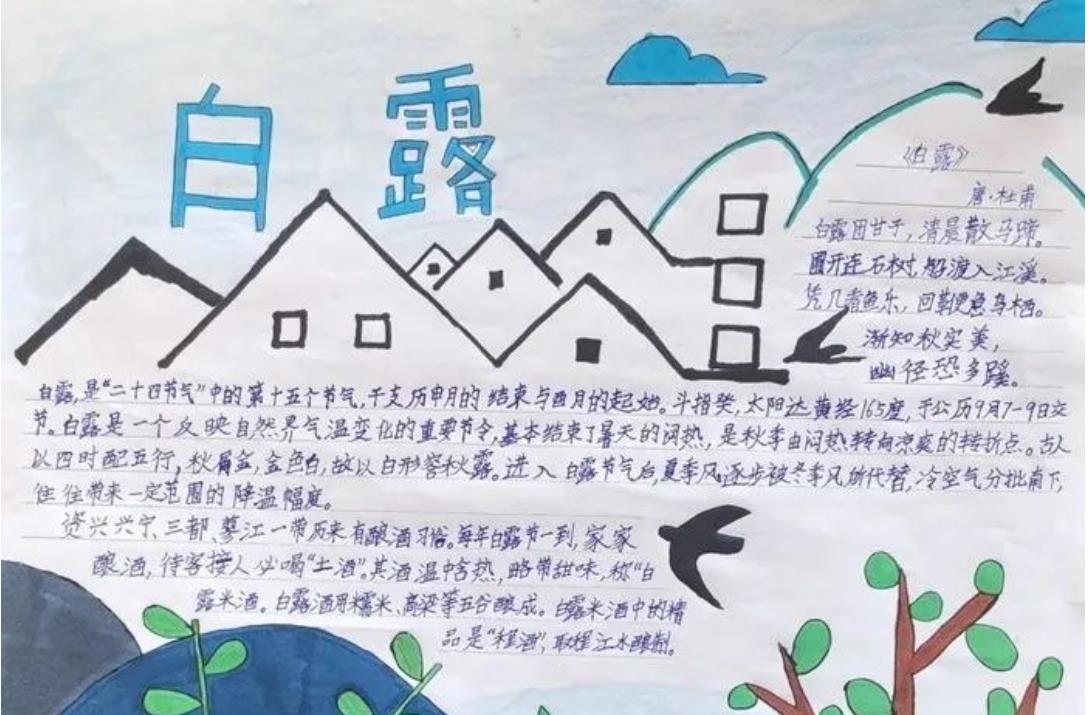 白露
《白露》
唐·杜甫
白露团甘子，清晨散马蹄。
圃开连石树，船渡入江溪。
凭几看鱼乐，回鞭急鸟栖。
渐知秋实美，
幽径恐多蹊。
白露，是“二十四节气”中的第十五个节气，干支历申月的结束与酉月的起始。斗指癸，太阳达黄经165度，于公历9月7-9日交
节。白露是一个反映自然界气温变化的重要节令，基本结束了暑天的闷热，是秋季由闷热转向凉爽的转折点。古人
以四时配五行，秋属金，金色白，故以白形容秋露。进入白露节气后，夏季风逐步被冬季风所代替，冷空气分批南下，
往往带来一定范围的降温幅度。
资兴兴宁、三都、蓼江一带历来有酿酒习俗。每年白露节一到，家家
酿酒，待客接人必喝“土酒”。其酒温中含热，略带甜味，称“白
露米酒。白露酒用糯米、高粱等五谷酿成。白露米酒中的精
品是“程酒”，取程江水酿制。